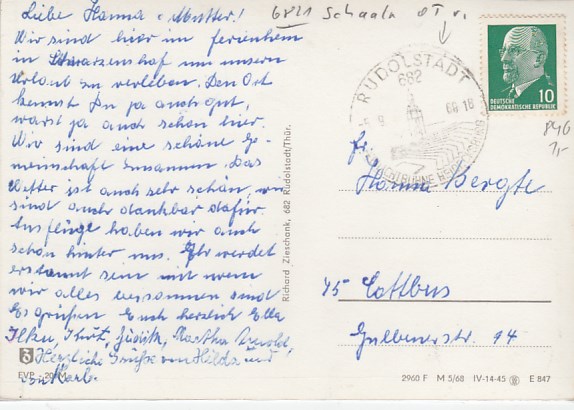 Liebe Hanna u. Mutter!
Wir sind hier im Ferienheim
in Schwarzenshof um unsern
Urlaub zu verleben. Den Ort
kennst Du ja auch gut,
warst ja auch schon hier.
Wir sind eine schöne Ge-
meinschaft zusammen. Das
Wetter ist auch sehr schön, wir
sind auch dankbar dafür.
Ausflüge haben wir auch
schon hinter uns. Ihr werdet
erstaunt sein mit wem
wir alles zusammen sind
Es grüßen Euch herzlich Ella
Kurt, Judith, Martha
Herzliche Grüße von Hilda und
von Karl.
EVP -,20 M
Richard Zieschank, 682 Rudolstadt/Thür.
6821 Schaala
RUDOLSTADT
682
DEUTSCHE
DEMOKRATISCHE REPUBLIK
10
Fr.
Hanna Bergte
75 Cottbus
Gulbenerstr. 94
2960 F M 5/68 IV-14-45 E 847